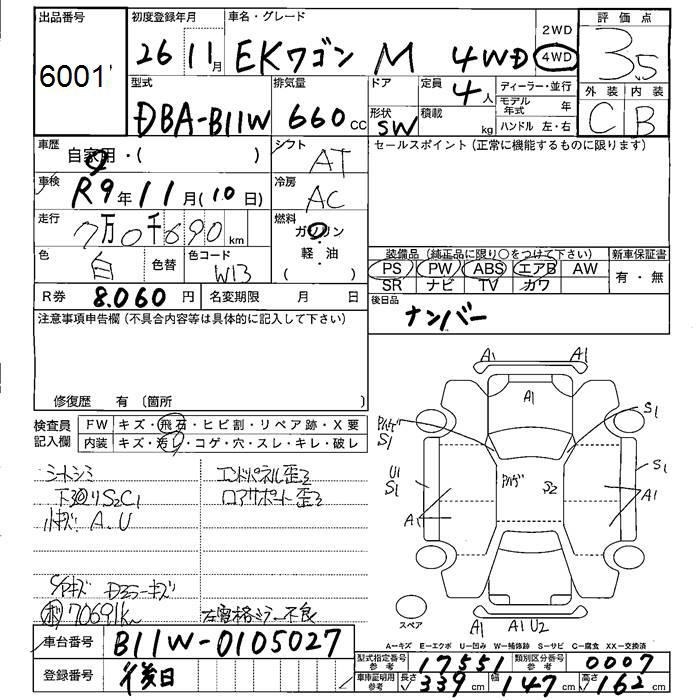 出品番号 初度登録年月 車名・グレード 評価点
6001 26 11月 EKワゴン M 4WD 2WD 4WD 3.5
型式 排気量 ドア 定員 4人 ディーラー・並行 外装 内装
DBA-B11W 660cc 形状 SW 積載 kg モデル年式 年 C B
ハンドル 左・右
車歴 自家用・( ) シフト AT セールスポイント(正常に機能するものに限ります)
車検 R9年11月(10日) 冷房 AC
走行 7万0千690km 燃料 ガソリン・軽・油 ( )
色 白 色替 色コード W13 装備品(純正品に限り○をつけて下さい) 新車保証書
PS PW ABS エアB AW 有・無
SR ナビ TV カワ
R券 8.060円 名変期限 月 日 後日品
ナンバー
注意事項申告欄(不具合内容等は具体的に記入して下さい)
修復歴 有(箇所 )
検査員記入欄 FW キズ・飛石・ヒビ割・リペア跡・X要
内装 キズ・汚レ・コゲ・穴・スレ・キレ・破レ
シートシミ エンドパネル歪ミ
下廻りS2C1 コアサポート歪ミ
小キズ A.U
70691km 左 ミラー不良
A1 A1
A1
S1 S1
U1 S1 S1
S2
A1 A1
スペア A1 A1U2
A=キズ E=エクボ U=凹み W=補修跡 S=サビ C=腐食 XX=交換済
車台番号 B11W-0105027
型式指定番号 参考 17551 類別区分番号 参考 0007
登録番号 後日
車庫証明用 参考 長さ 339cm 幅 147cm 高さ 162cm